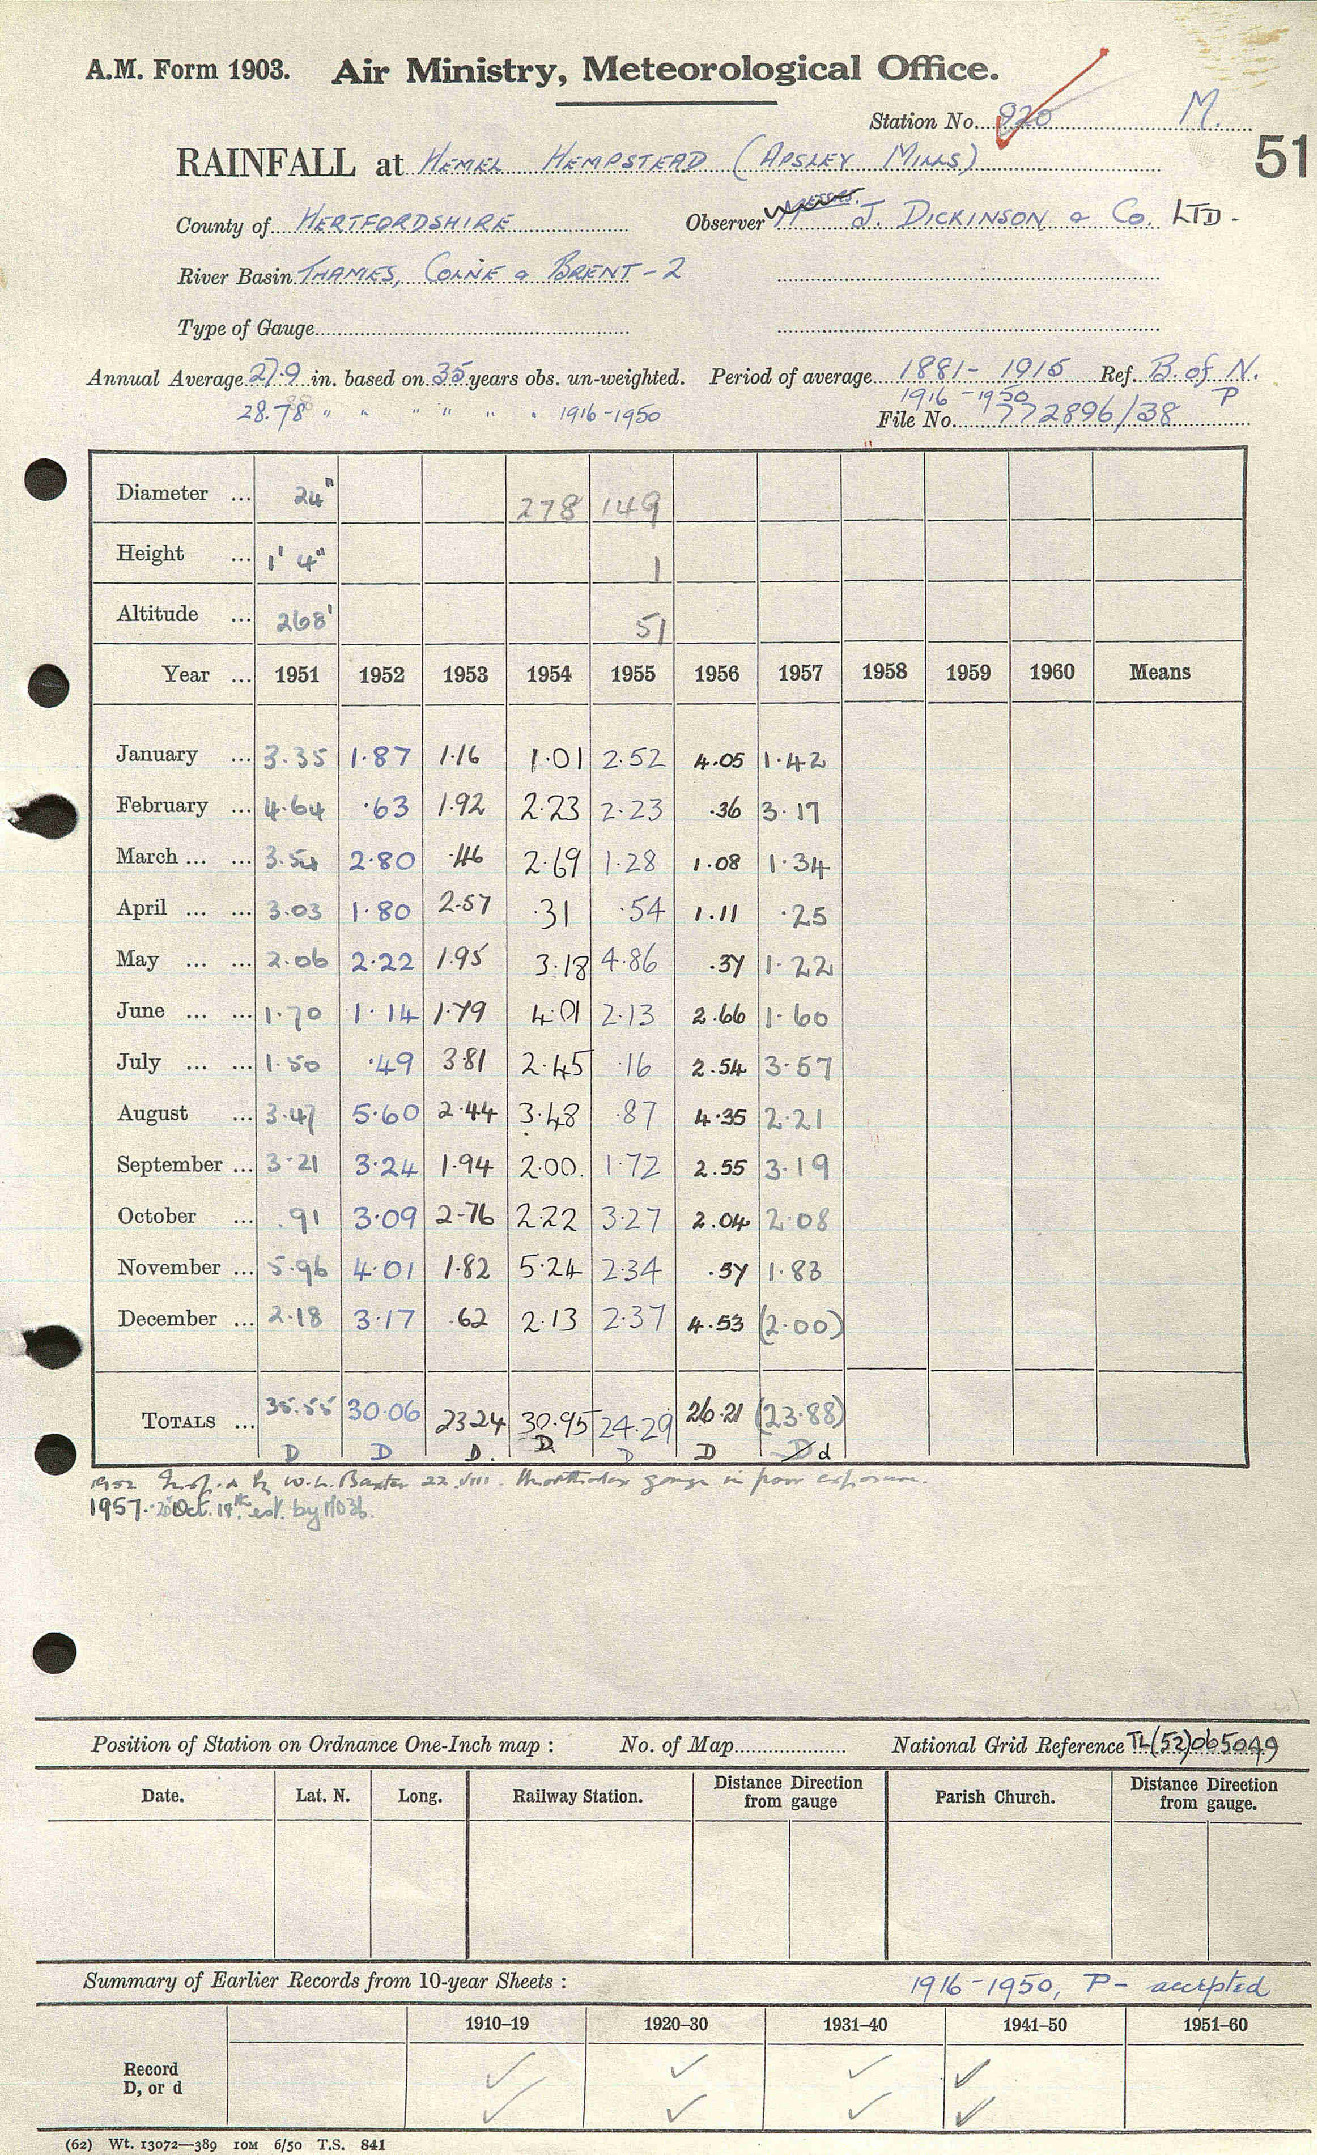 A.M. Form 1903. Air Ministry, Meteorological Office.
Station No. 920 M.
RAINFALL at HEMEL HEMPSTEAD (APSLEY MILLS) 51
County of HERTFORDSHIRE Observer J. DICKINSON & Co. LTD.
River Basin THAMES, COLNE & BRENT - 2
Type of Gauge
Annual Average 27.9 in. based on 35 years obs. un-weighted. Period of average 1881 - 1915 Ref. B of N.
28.78 " " " " " " 1916-1950 1916 - 1950 P
File No. 772896/38
Diameter ... 24" 278 149
Height ... 1' 4" 1
Altitude ... 268' 51
Year ... 1951 1952 1953 1954 1955 1956 1957 1958 1959 1960 Means
January ... 3.35 1.87 1.16 1.01 2.52 4.05 1.42
February ... 4.64 .63 1.92 2.23 2.23 .36 3.17
March ... ... 3.54 2.80 .46 2.69 1.28 1.08 1.34
April ... ... 3.03 1.80 2.57 .31 .54 1.11 .25
May ... ... 2.06 2.22 1.95 3.18 4.86 .37 1.22
June ... ... 1.70 1.14 1.79 4.01 2.13 2.66 1.60
July ... ... 1.50 .49 3.81 2.45 .16 2.54 3.57
August ... 3.47 5.60 2.44 3.48 .87 4.35 2.21
September ... 3.21 3.24 1.94 2.00 1.72 2.55 3.19
October ... .91 3.09 2.76 2.22 3.27 2.04 2.08
November ... 5.96 4.01 1.82 5.24 2.34 .57 1.83
December ... 2.18 3.17 .62 2.13 2.37 4.53 (2.00)
TOTALS ... 35.55 30.06 23.24 30.95 24.29 26.21 (23.88)
D D D. D D D D d
1952 by W.L. Baxter 22.VIII. gauge in poor exposure.
1957. Oct. 19th est. by MO3b.
Position of Station on Ordnance One-Inch map : No. of Map National Grid Reference TL(52)065049
Date. Lat. N. Long. Railway Station. Distance Direction from gauge Parish Church. Distance Direction from gauge.
Summary of Earlier Records from 10-year Sheets : 1916-1950, P- accepted
1910-19 1920-30 1931-40 1941-50 1951-60
Record
D, or d
(62) Wt. 13072—389 10M 6/50 T.S. 841